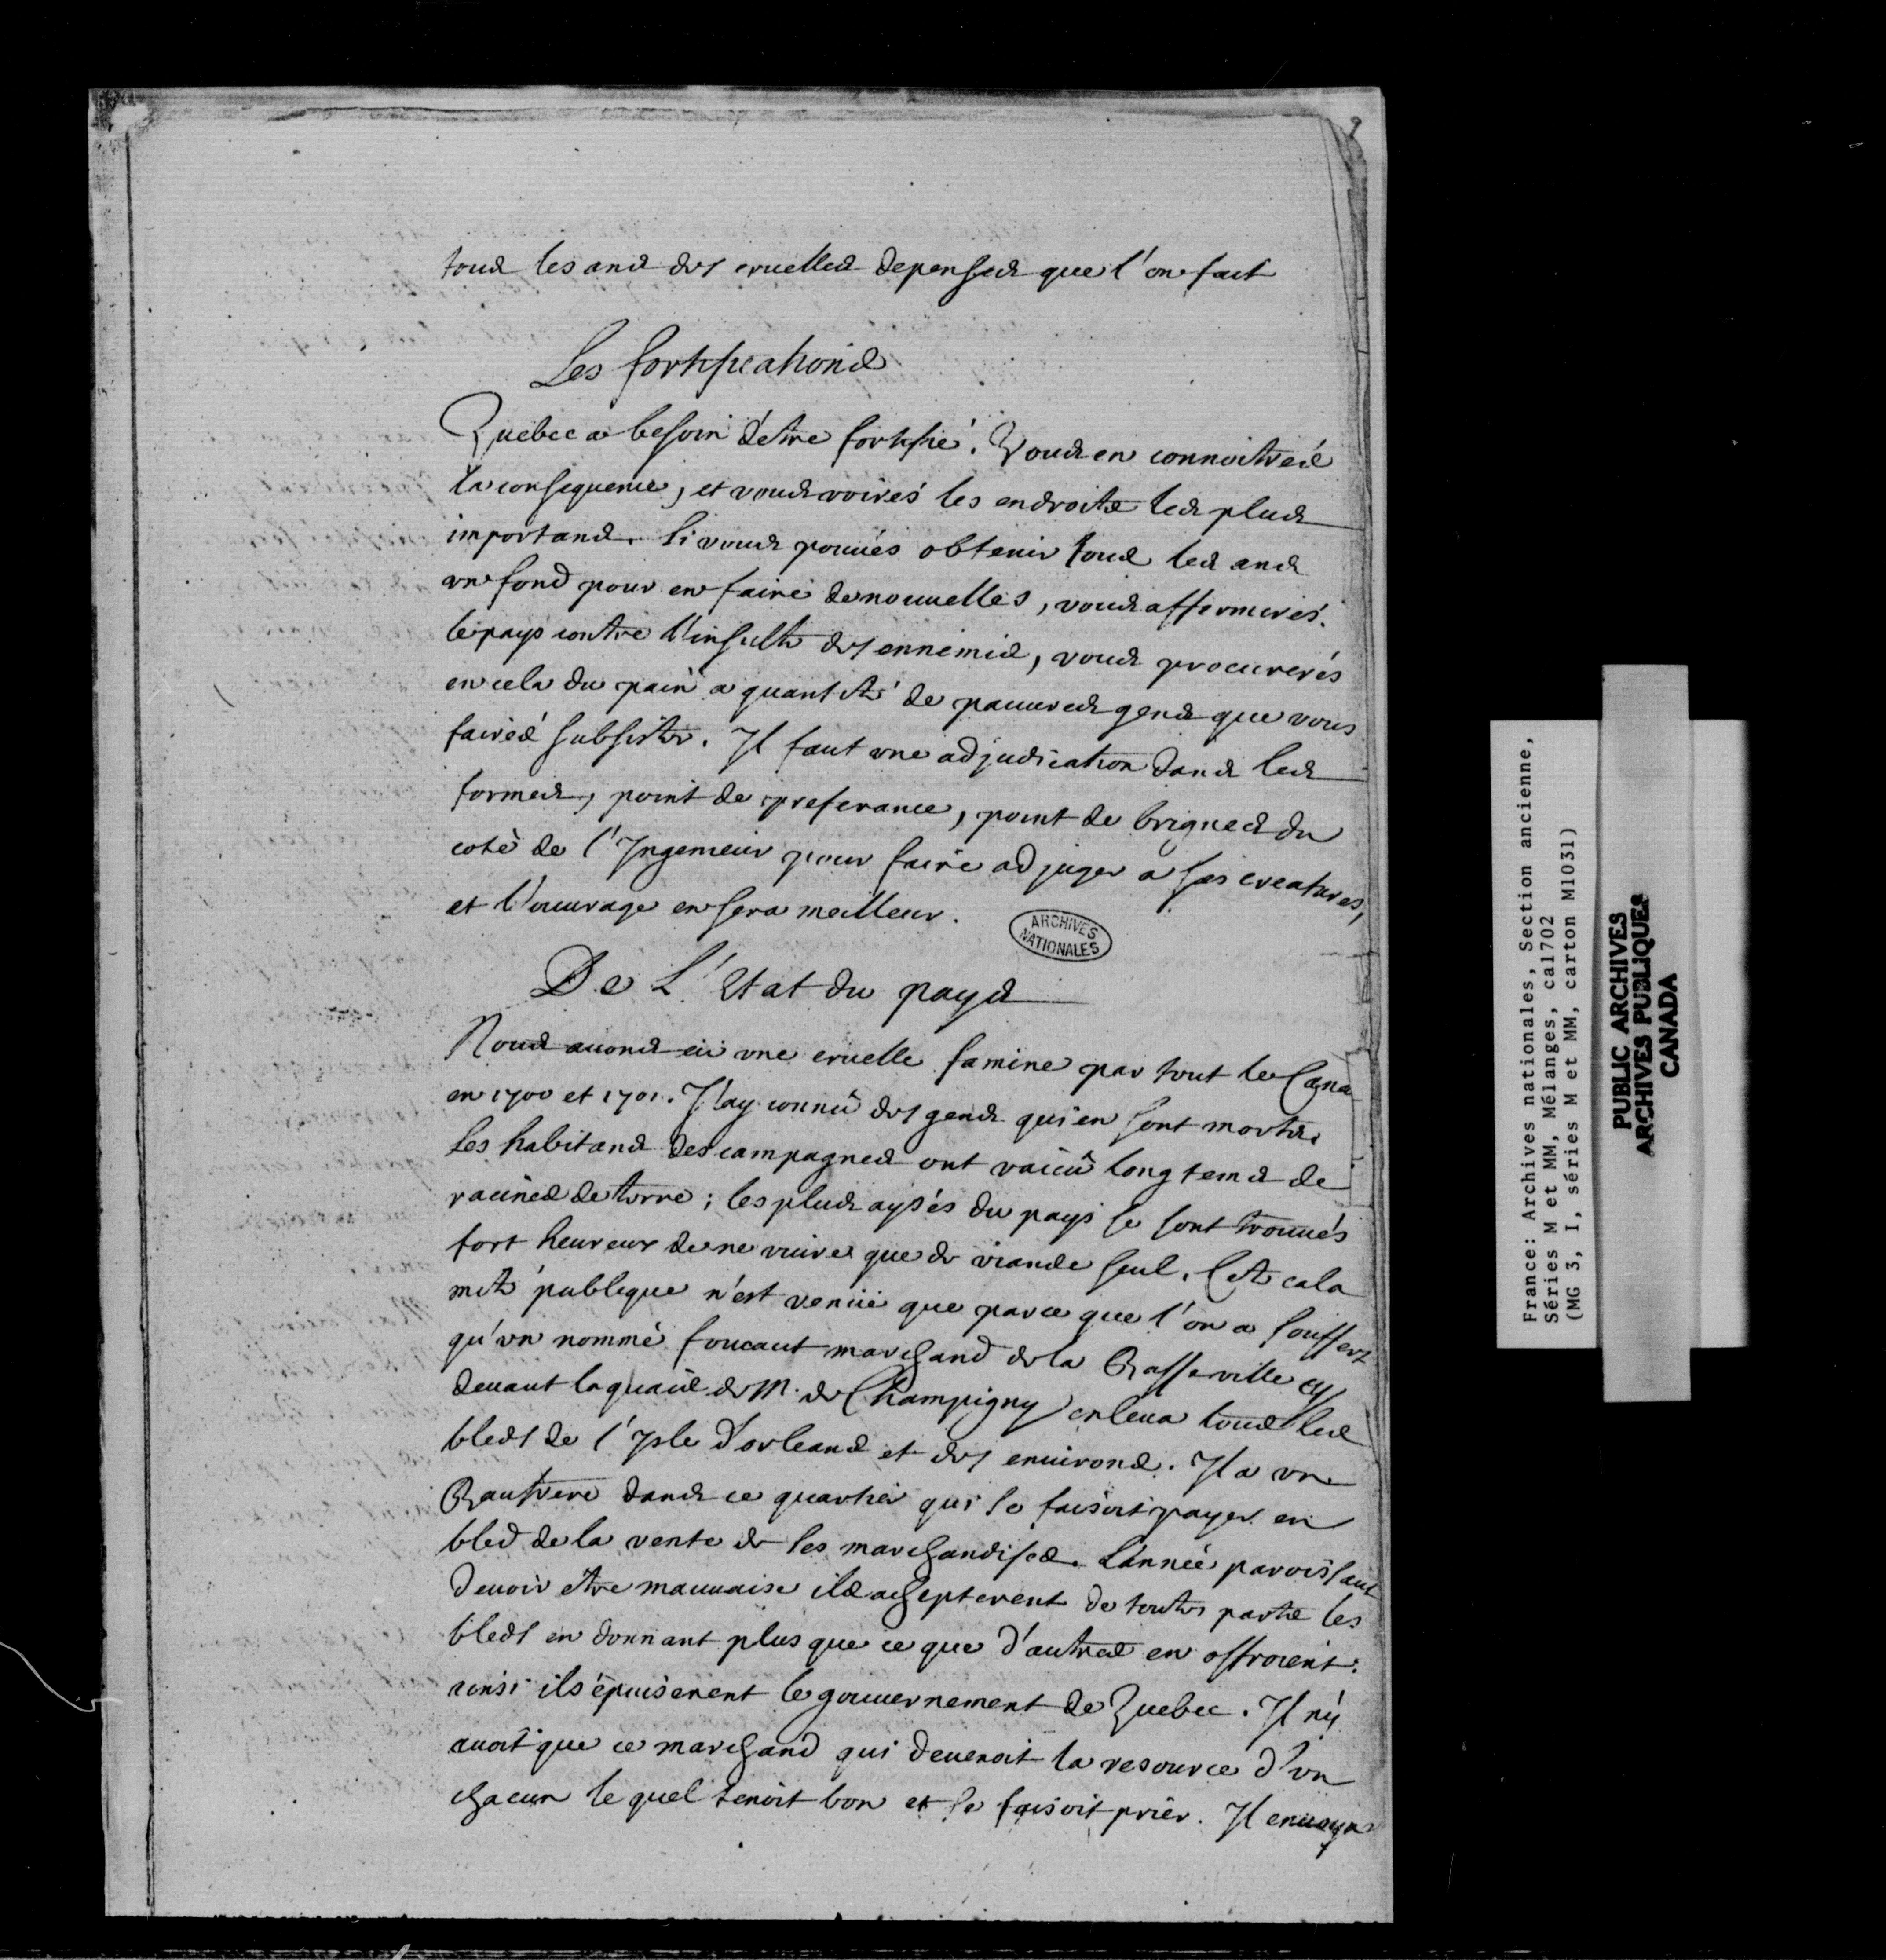 9
tous les ans des cruelles depenses que l'on fait
Les fortifications
Quebec a besoin d'etre fortifié. Vous en connoitrés
la consequence, et vous voirés les endroits les plus
importans. Si vous pouués obtenir tous les ans
vn fond pour en faire de nouuelles, vous affermirés
le pays contre l'insulte des ennemis, vous procurerés
en cela du pain a quantité de pauures gens que vous
fairés subsister. Il faut vne adjudication dans les
formes, point de preferance, point de brigues du
coté de l'Ingenieur pour faire adjuger a ses creatures,
et l'ouurage en sera meilleur.
ARCHIVES
NATIONALES
De L'Etat du pays
Nous auons eü vne cruelle famine par tout le Cana
en 1700 et 1701. J'ay connû des gens qui en sont morts.
Les habitans des campagnes ont vaicû long tems de
racines de terre; les plus aysés du pays se sont trouués
fort heureux de ne viure que de viande seul. Cete cala
mité publique n'est venüe que parce que l'on a souffert
qu'vn nommé foucaut marchand de la Basse ville cy
deuant laquais de M. de Champigny enleua tous les
bleds de l'Isle d'orleans et des enuirons. Il a vn
Beaufrere dans ce quartier qui se faisoit payer en
bled de la vente de ses marchandises. L'année paroissant
deuoir etre mauuaise ils achepterent de toutes parts les
bleds en donnant plus que ce que d'autres en offroient:
ainsi ils épuiserent le gouuernement de Quebec. Il n'y
auoit que ce marchand qui deuenoit la resource d'vn
chacun le quel tenoit bon et se faisoit prier. Il enuoya
France: Archives nationales, Section ancienne,
Séries M et MM, Mélanges, ca1702
(MG 3, I, séries M et MM, carton M1031)
PUBLIC ARCHIVES
ARCHIVES PUBLIQUES
CANADA